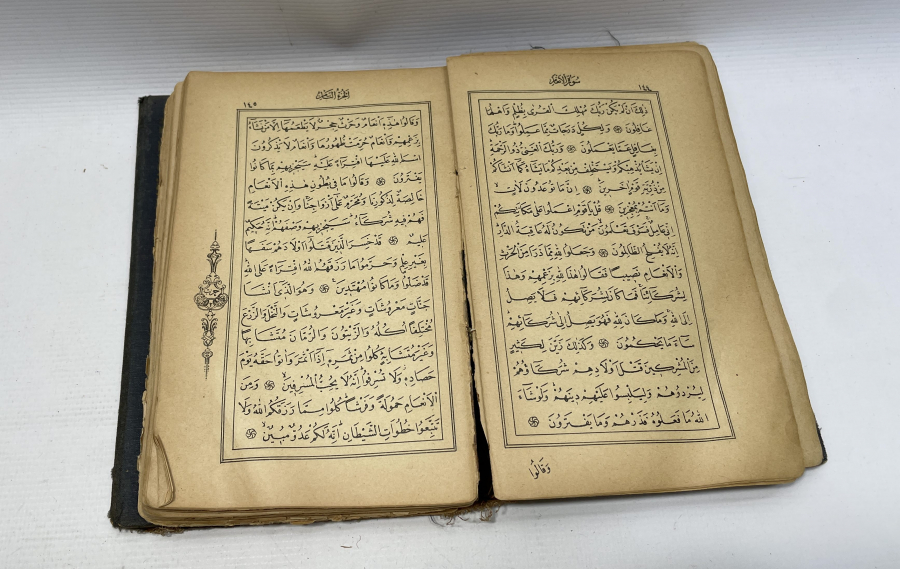 سورة الانعام
١٤٤
ذٰلِكَ اَنْ لَمْ يَكُنْ رَبُّكَ مُهْلِكَ الْقُرٰى بِظُلْمٍ وَاَهْلُهَا
غَافِلُونَ وَلِكُلٍّ دَرَجَاتٌ مِمَّا عَمِلُوا وَمَا رَبُّكَ
بِغَافِلٍ عَمَّا يَعْمَلُونَ وَرَبُّكَ الْغَنِىُّ ذُو الرَّحْمَةِ
اِنْ يَشَأْ يُذْهِبْكُمْ وَيَسْتَخْلِفْ مِنْ بَعْدِكُمْ مَا يَشَاءُ كَمَا اَنْشَاَكُمْ
مِنْ ذُرِّيَّةِ قَوْمٍ اٰخَرِينَ اِنَّ مَا تُوعَدُونَ لَاٰتٍ
وَمَا اَنْتُمْ بِمُعْجِزِينَ قُلْ يَا قَوْمِ اعْمَلُوا عَلٰى مَكَانَتِكُمْ
اِنِّى عَامِلٌ فَسَوْفَ تَعْلَمُونَ مَنْ تَكُونُ لَهُ عَاقِبَةُ الدَّارِ
اِنَّهُ لَا يُفْلِحُ الظَّالِمُونَ وَجَعَلُوا لِلّٰهِ مِمَّا ذَرَاَ مِنَ الْحَرْثِ
وَالْاَنْعَامِ نَصِيبًا فَقَالُوا هٰذَا لِلّٰهِ بِزَعْمِهِمْ وَهٰذَا
لِشُرَكَائِنَا فَمَا كَانَ لِشُرَكَائِهِمْ فَلَا يَصِلُ
اِلَى اللّٰهِ وَمَا كَانَ لِلّٰهِ فَهُوَ يَصِلُ اِلٰى شُرَكَائِهِمْ
سَاءَ مَا يَحْكُمُونَ وَكَذٰلِكَ زَيَّنَ لِكَثِيرٍ
مِنَ الْمُشْرِكِينَ قَتْلَ اَوْلَادِهِمْ شُرَكَاؤُهُمْ
لِيُرْدُوهُمْ وَلِيَلْبِسُوا عَلَيْهِمْ دِينَهُمْ وَلَوْ شَاءَ
اللّٰهُ مَا فَعَلُوهُ فَذَرْهُمْ وَمَا يَفْتَرُونَ
وَقَالُوا
الجزء الثامن
١٤٥
وَقَالُوا هٰذِهِ اَنْعَامٌ وَحَرْثٌ حِجْرٌ لَا يَطْعَمُهَا اِلَّا مَنْ نَشَاءُ
بِزَعْمِهِمْ وَاَنْعَامٌ حُرِّمَتْ ظُهُورُهَا وَاَنْعَامٌ لَا يَذْكُرُونَ
اسْمَ اللّٰهِ عَلَيْهَا افْتِرَاءً عَلَيْهِ سَيَجْزِيهِمْ بِمَا كَانُوا
يَفْتَرُونَ وَقَالُوا مَا فِى بُطُونِ هٰذِهِ الْاَنْعَامِ
خَالِصَةٌ لِذُكُورِنَا وَمُحَرَّمٌ عَلٰى اَزْوَاجِنَا وَاِنْ يَكُنْ مَيْتَةً
فَهُمْ فِيهِ شُرَكَاءُ سَيَجْزِيهِمْ وَصْفَهُمْ اِنَّهُ حَكِيمٌ
عَلِيمٌ قَدْ خَسِرَ الَّذِينَ قَتَلُوا اَوْلَادَهُمْ سَفَهًا
بِغَيْرِ عِلْمٍ وَحَرَّمُوا مَا رَزَقَهُمُ اللّٰهُ افْتِرَاءً عَلَى اللّٰهِ
قَدْ ضَلُّوا وَمَا كَانُوا مُهْتَدِينَ وَهُوَ الَّذِى اَنْشَاَ
جَنَّاتٍ مَعْرُوشَاتٍ وَغَيْرَ مَعْرُوشَاتٍ وَالنَّخْلَ وَالزَّرْعَ
مُخْتَلِفًا اُكُلُهُ وَالزَّيْتُونَ وَالرُّمَّانَ مُتَشَابِهًا
وَغَيْرَ مُتَشَابِهٍ كُلُوا مِنْ ثَمَرِهِ اِذَا اَثْمَرَ وَاٰتُوا حَقَّهُ يَوْمَ
حَصَادِهِ وَلَا تُسْرِفُوا اِنَّهُ لَا يُحِبُّ الْمُسْرِفِينَ وَمِنَ
الْاَنْعَامِ حَمُولَةً وَفَرْشًا كُلُوا مِمَّا رَزَقَكُمُ اللّٰهُ وَلَا
تَتَّبِعُوا خُطُوَاتِ الشَّيْطَانِ اِنَّهُ لَكُمْ عَدُوٌّ مُبِينٌ